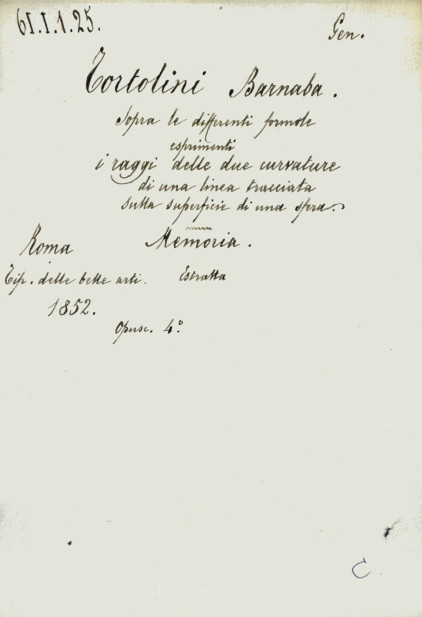 61.I.1.25.
Gen.
Tortolini Barnaba.
Sopra le differenti formole
esprimenti
i raggi delle due curvature
di una linea tracciata
sulla superficie di una sfera.
Memoria.
Roma
Tip. delle belle arti. Estratta
1852.
Opusc. 4º
C